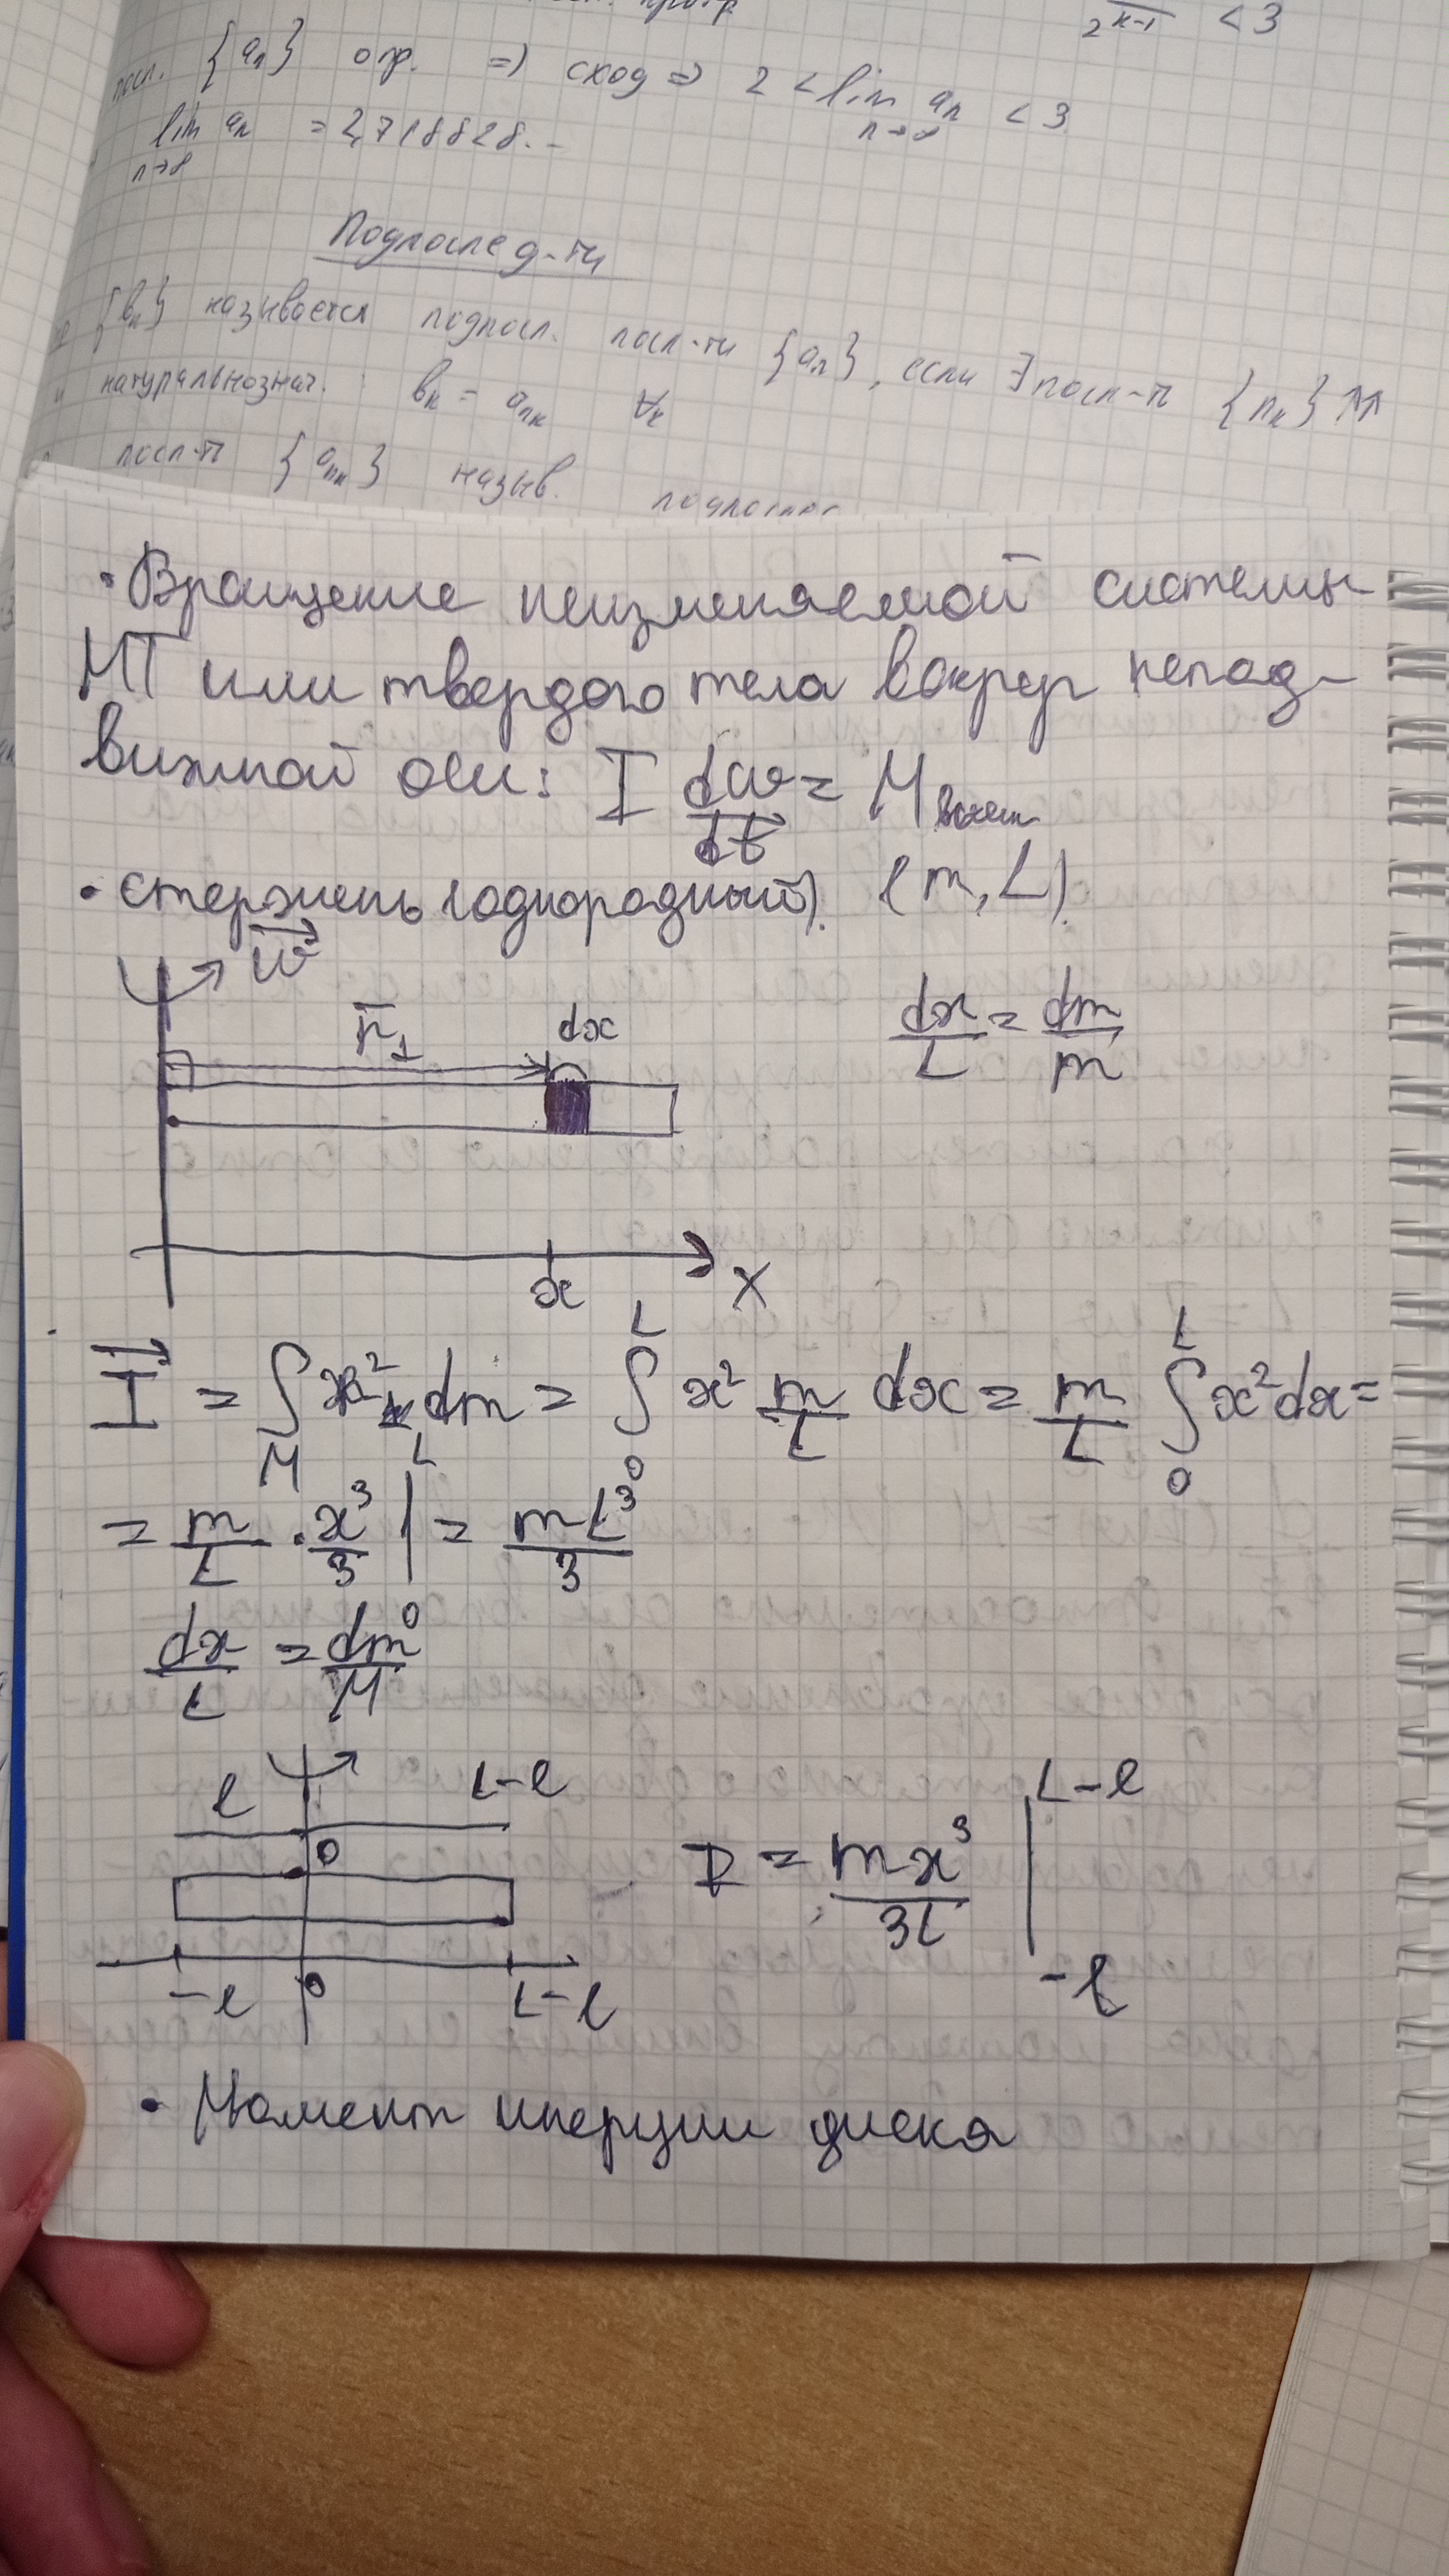 2^{k-1} < 3
посл. {aₙ} огр. => сход => 2 < lim aₙ < 3
n→∞
lim aₙ = 2,718828...
n→∞
Подпослед-ти
{bₖ} называется подпосл. посл-ти {aₙ}, если ∃ посл-ть {nₖ} ↑↑
и натуральнознач. : bₖ = aₙₖ ∀k
посл-ть {aₙₖ} назыв.
• Вращение неизменяемой системы
МТ или твердого тела вокруг непод-
вижной оси: I dω/dt = M внешн
• Стержень (однородный). (m, L).
ω
r⊥ dx
dx/L = dm/m
x X
I = ∫_M x² dm = ∫₀ᴸ x² m/L dx = m/L ∫₀ᴸ x² dx =
= m/L · x³/3 |₀ᴸ = mL³/3
dx/L = dm/M
l L-l
0
I = mx³/3L |_{-l}^{L-l}
-l 0 L-l
• Момент инерции диска